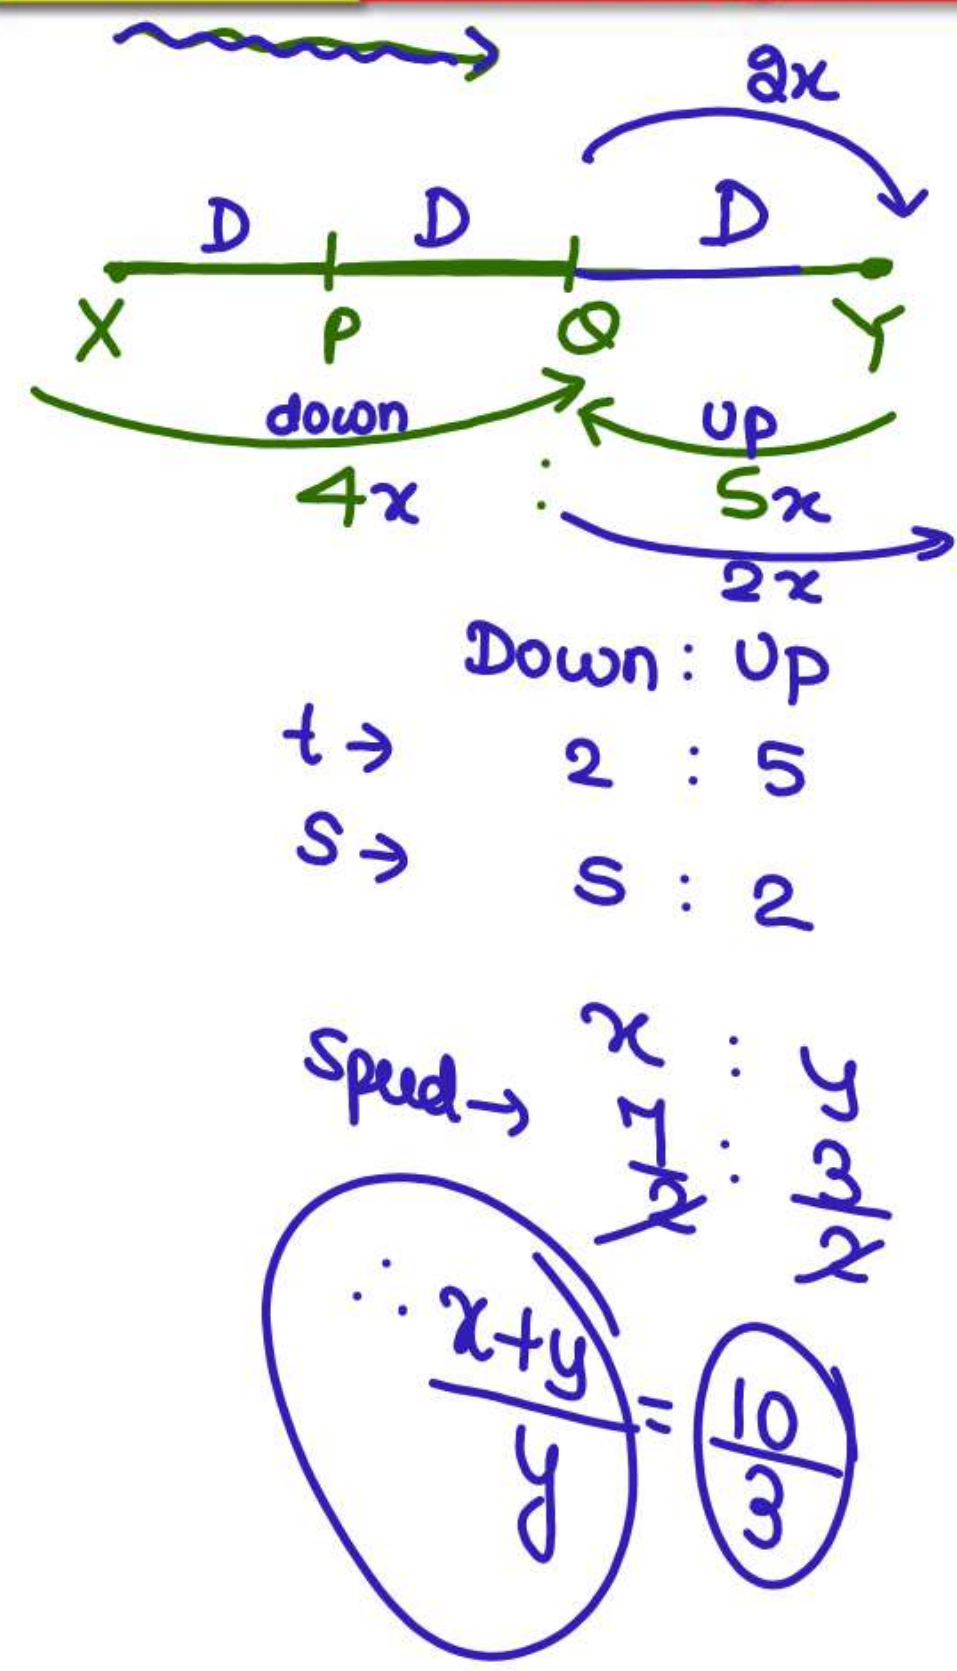 2x
D D D
X P Q Y
down up
4x : 5x
2x
Down : Up
t → 2 : 5
S → 5 : 2
x : y
Speed → 7/2 : 3/2
∴ x+y/y = 10/3